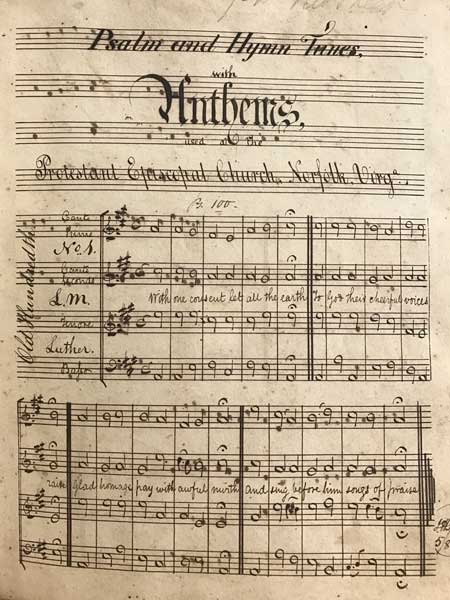 Psalm and Hymn Tunes,
with
Anthems,
used at the
Protestant Episcopal Church, Norfolk, Virgᵃ.
Ps. 100.
Old Hundredth.
Canto
Primo
No. 1.
Canto
Secondo
L.M.
Tenore
Luther.
Basso
With one consent let all the earth To God their cheerful voices
raise Glad homage pay with awful mirth And sing before him songs of praise